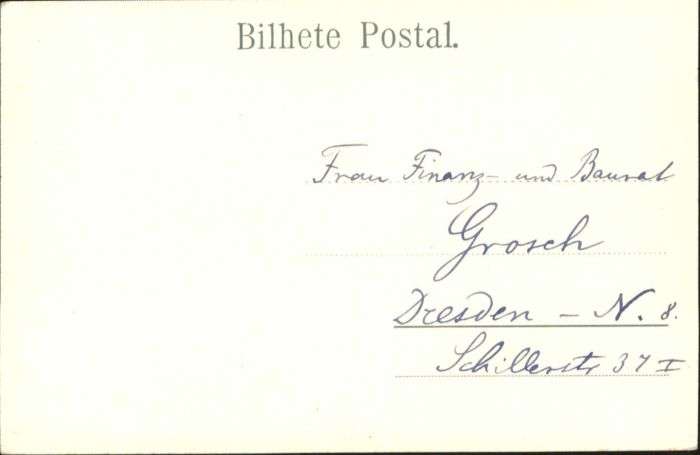 Bilhete Postal.
Frau Finanz- und Baurat
Grosch
Dresden - N. 8.
Schillerstr 37 I